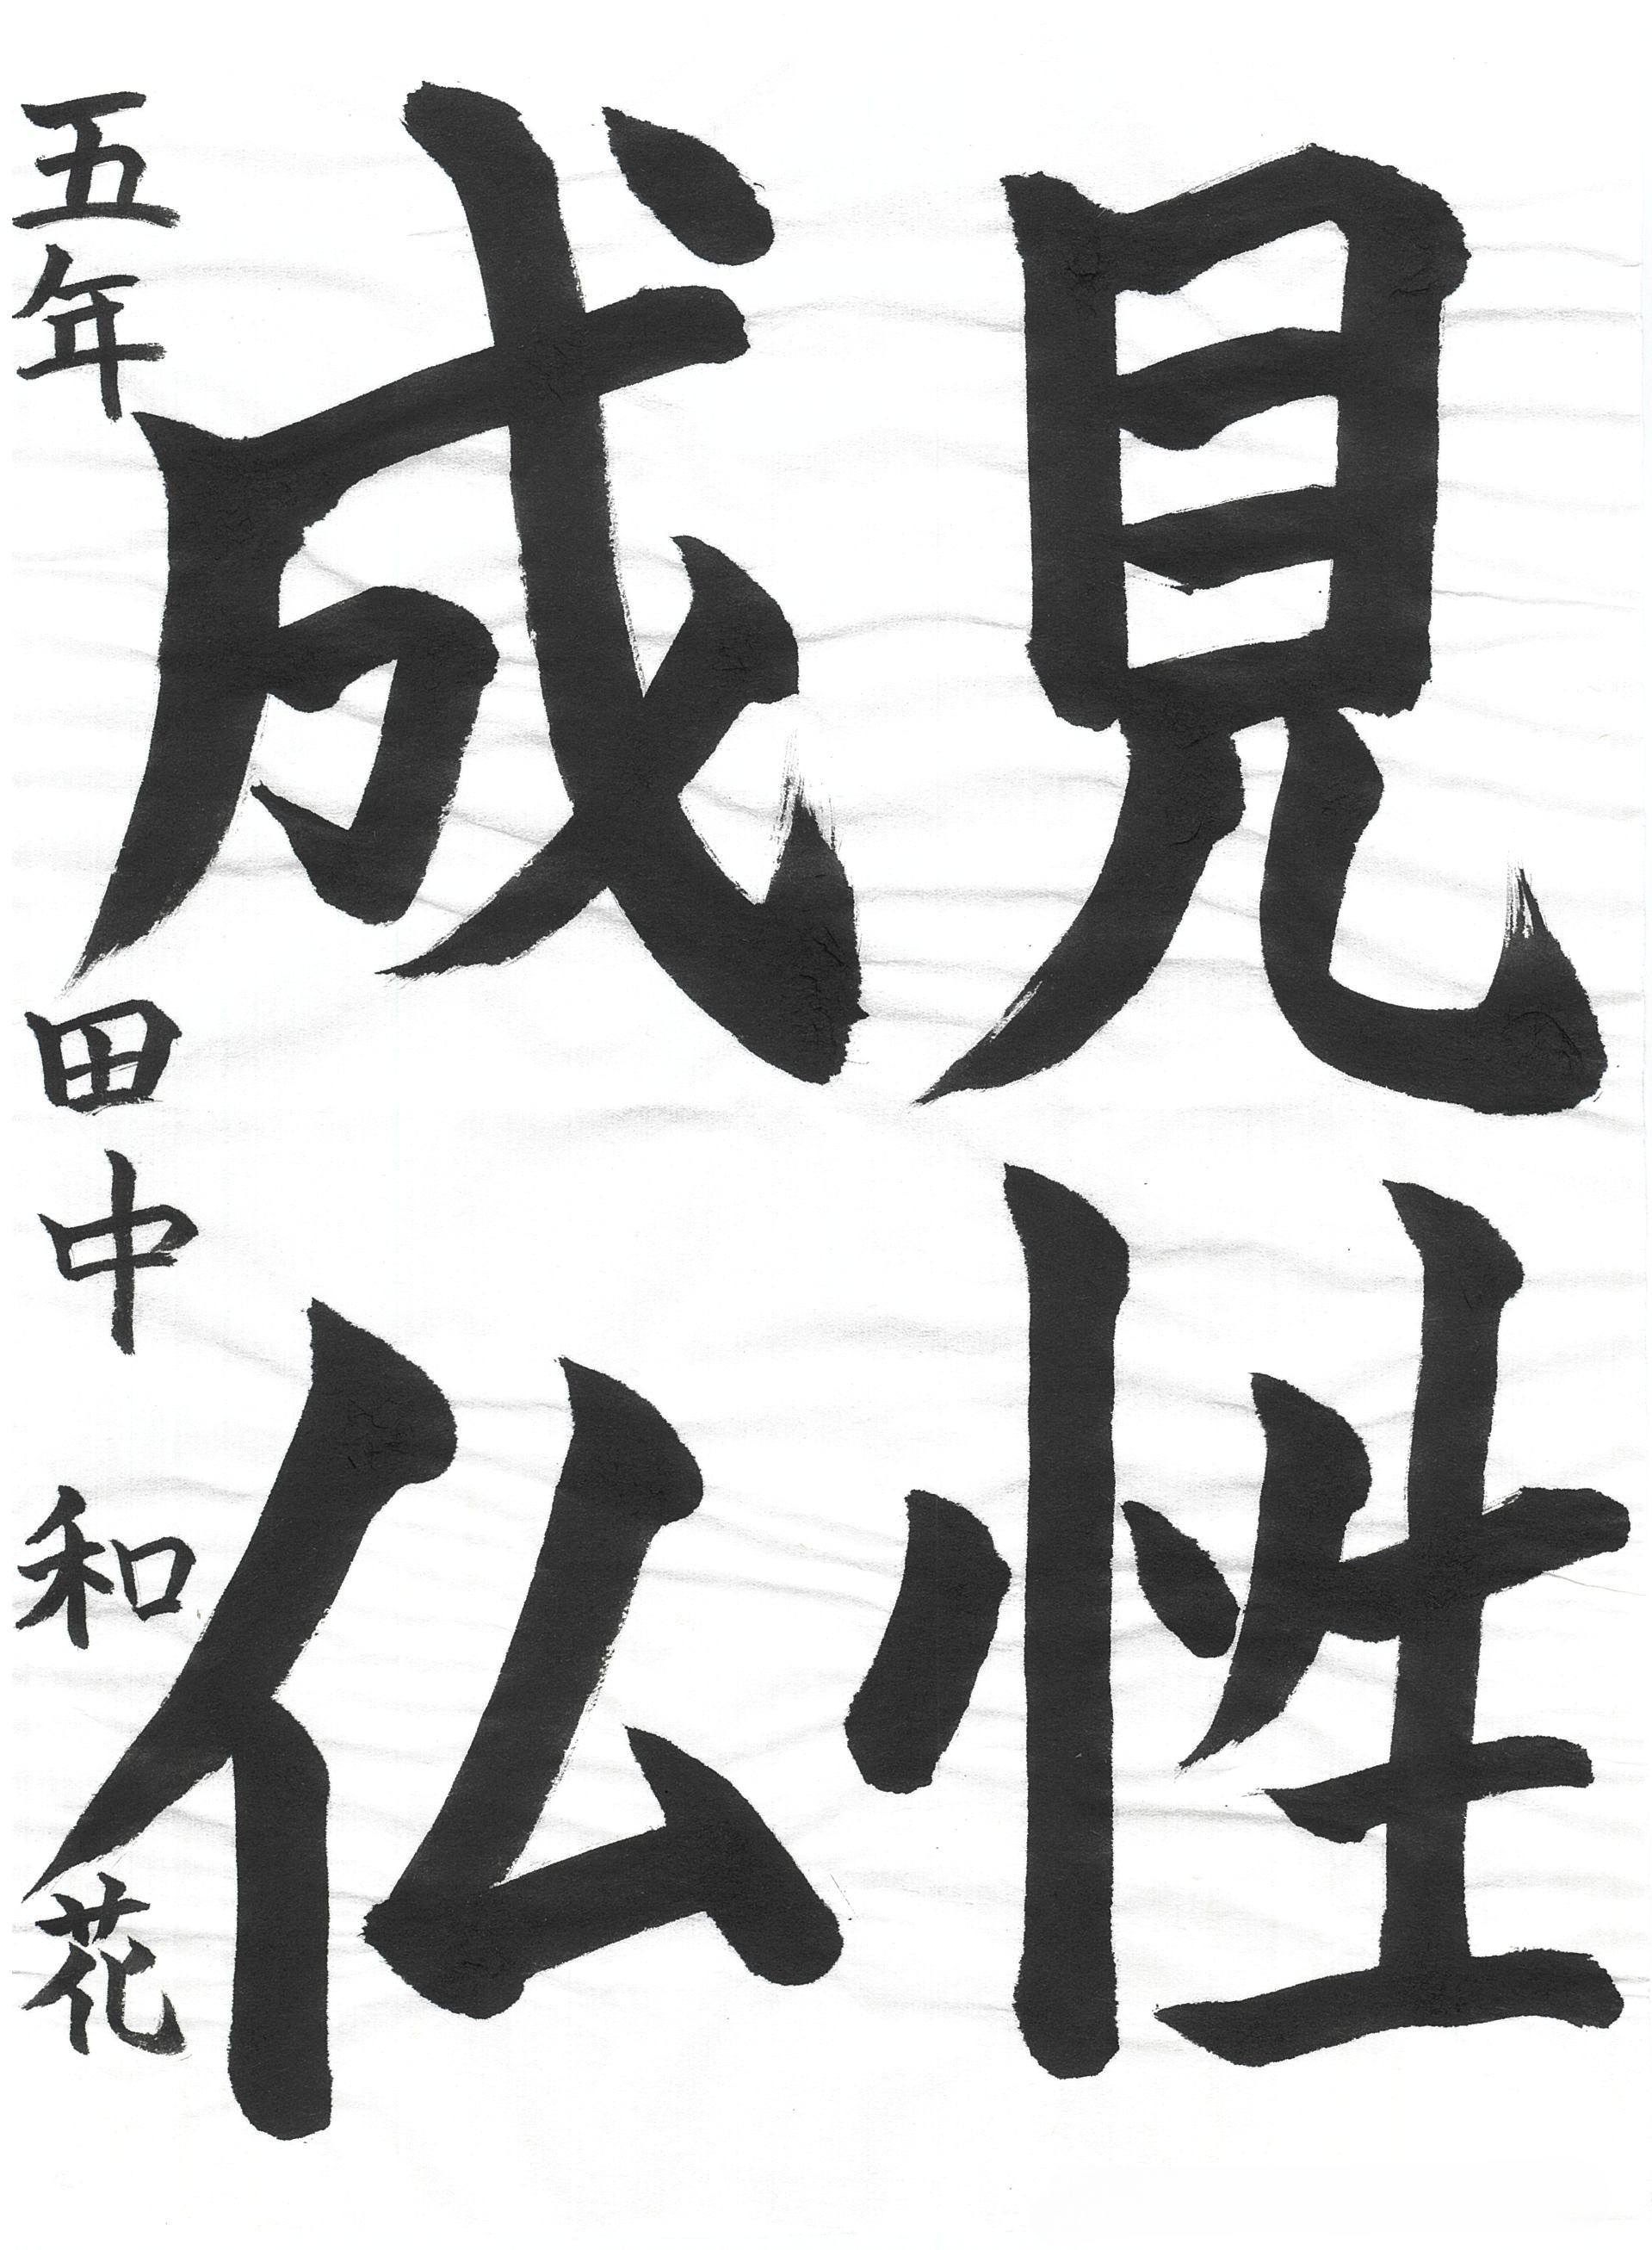 見性
成仏
五年 田中 和花